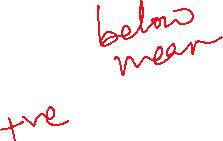 below
mean
+ve